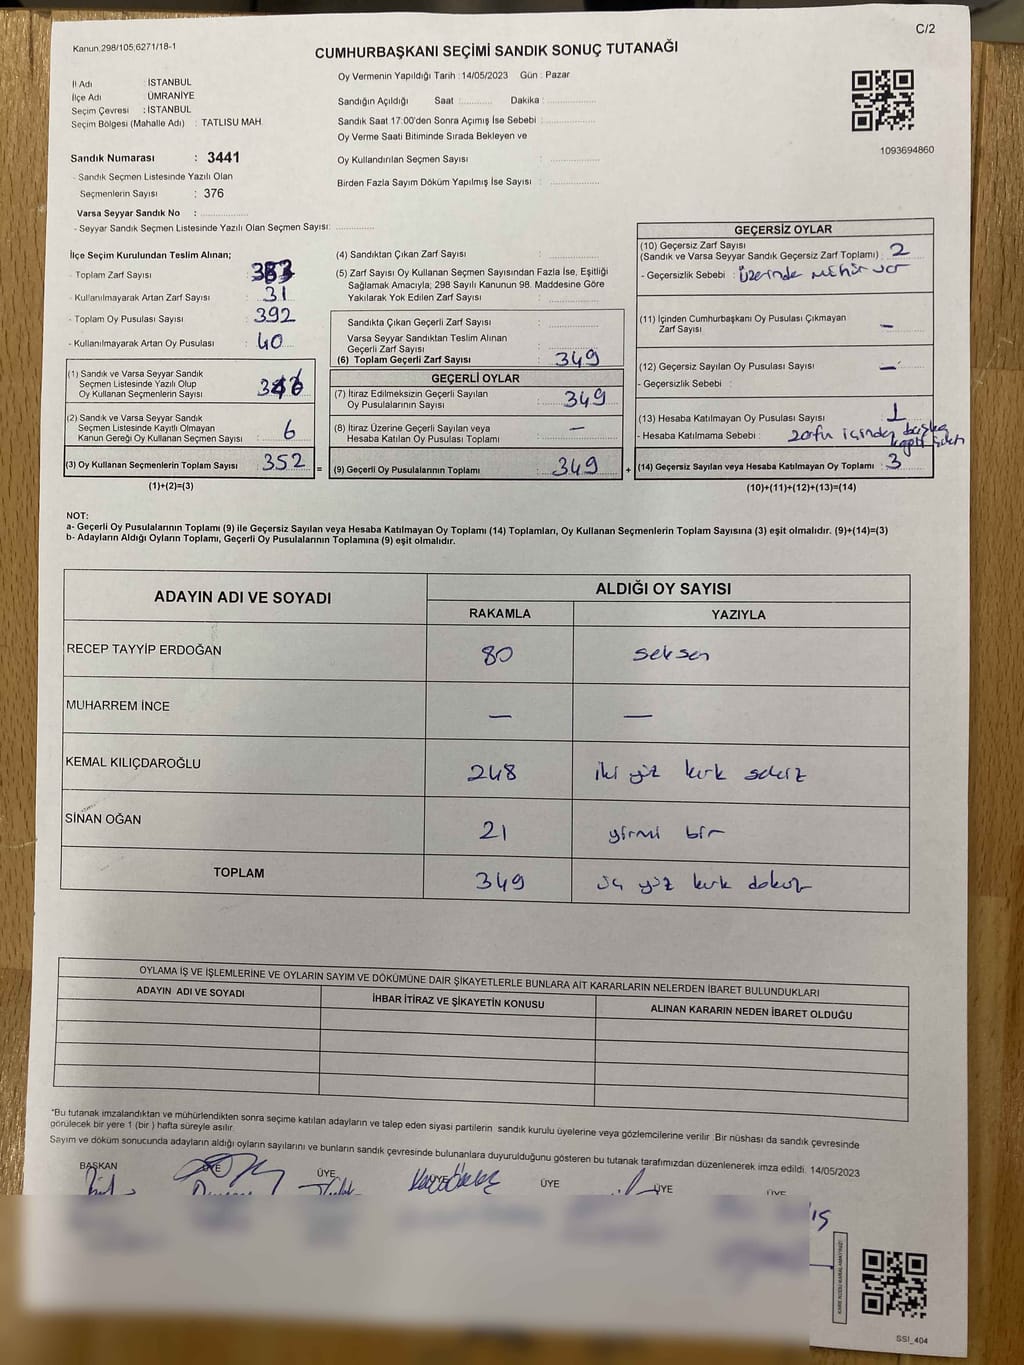 C/2
Kanun,298/105,6271/18-1
CUMHURBAŞKANI SEÇİMİ SANDIK SONUÇ TUTANAĞI
İl Adı : İSTANBUL
İlçe Adı ÜMRANİYE
Seçim Çevresi : İSTANBUL
Seçim Bölgesi (Mahalle Adı) : TATLISU MAH.
Sandık Numarası : 3441
- Sandık Seçmen Listesinde Yazılı Olan
Seçmenlerin Sayısı : 376
Varsa Seyyar Sandık No :
- Seyyar Sandık Seçmen Listesinde Yazılı Olan Seçmen Sayısı:
Oy Vermenin Yapıldığı Tarih : 14/05/2023 Gün : Pazar
Sandığın Açıldığı Saat Dakika :
Sandık Saat 17:00'den Sonra Açımış İse Sebebi :
Oy Verme Saati Bitiminde Sırada Bekleyen ve
Oy Kullandırılan Seçmen Sayısı :
Birden Fazla Sayım Döküm Yapılmış İse Sayısı :
1093694860
İlçe Seçim Kurulundan Teslim Alınan;
- Toplam Zarf Sayısı :
- Kullanılmayarak Artan Zarf Sayısı : 31
- Toplam Oy Pusulası Sayısı : 392
- Kullanılmayarak Artan Oy Pusulası : 40
(1) Sandık ve Varsa Seyyar Sandık
Seçmen Listesinde Yazılı Olup
Oy Kullanan Seçmenlerin Sayısı :
(2) Sandık ve Varsa Seyyar Sandık
Seçmen Listesinde Kayıtlı Olmayan
Kanun Gereği Oy Kullanan Seçmen Sayısı : 6
(3) Oy Kullanan Seçmenlerin Toplam Sayısı : 352 =
(1)+(2)=(3)
(4) Sandıktan Çıkan Zarf Sayısı :
(5) Zarf Sayısı Oy Kullanan Seçmen Sayısından Fazla İse, Eşitliği
Sağlamak Amacıyla; 298 Sayılı Kanunun 98. Maddesine Göre
Yakılarak Yok Edilen Zarf Sayısı :
Sandıkta Çıkan Geçerli Zarf Sayısı :
Varsa Seyyar Sandıktan Teslim Alınan
Geçerli Zarf Sayısı :
(6) Toplam Geçerli Zarf Sayısı : 349
GEÇERLİ OYLAR
(7) İtiraz Edilmeksizin Geçerli Sayılan
Oy Pusulalarının Sayısı : 349
(8) İtiraz Üzerine Geçerli Sayılan veya
Hesaba Katılan Oy Pusulası Toplamı : —
(9) Geçerli Oy Pusulalarının Toplamı : 349 +
GEÇERSİZ OYLAR
(10) Geçersiz Zarf Sayısı
(Sandık ve Varsa Seyyar Sandık Geçersiz Zarf Toplamı) : 2
- Geçersizlik Sebebi : üzerinde mühür var
(11) İçinden Cumhurbaşkanı Oy Pusulası Çıkmayan
Zarf Sayısı : —
(12) Geçersiz Sayılan Oy Pusulası Sayısı : —
- Geçersizlik Sebebi :
(13) Hesaba Katılmayan Oy Pusulası Sayısı : 1
- Hesaba Katılmama Sebebi : zarfın içinden başka
(14) Geçersiz Sayılan veya Hesaba Katılmayan Oy Toplamı : 3
(10)+(11)+(12)+(13)=(14)
NOT:
a- Geçerli Oy Pusulalarının Toplamı (9) ile Geçersiz Sayılan veya Hesaba Katılmayan Oy Toplamı (14) Toplamları, Oy Kullanan Seçmenlerin Toplam Sayısına (3) eşit olmalıdır. (9)+(14)=(3)
b- Adayların Aldığı Oyların Toplamı, Geçerli Oy Pusulalarının Toplamına (9) eşit olmalıdır.
ADAYIN ADI VE SOYADI ALDIĞI OY SAYISI
RAKAMLA YAZIYLA
RECEP TAYYİP ERDOĞAN 80 seksen
MUHARREM İNCE — —
KEMAL KILIÇDAROĞLU 248 iki yüz kırk sekiz
SİNAN OĞAN 21 yirmi bir
TOPLAM 349 üç yüz kırk dokuz
OYLAMA İŞ VE İŞLEMLERİNE VE OYLARIN SAYIM VE DÖKÜMÜNE DAİR ŞİKAYETLERLE BUNLARA AİT KARARLARIN NELERDEN İBARET BULUNDUKLARI
ADAYIN ADI VE SOYADI İHBAR İTİRAZ VE ŞİKAYETİN KONUSU ALINAN KARARIN NEDEN İBARET OLDUĞU
*Bu tutanak imzalandıktan ve mühürlendikten sonra seçime katılan adayların ve talep eden siyasi partilerin sandık kurulu üyelerine veya gözlemcilerine verilir. Bir nüshası da sandık çevresinde
görülecek bir yere 1 (bir ) hafta süreyle asılır.
Sayım ve döküm sonucunda adayların aldığı oyların sayılarını ve bunların sandık çevresinde bulunanlara duyurulduğunu gösteren bu tutanak tarafımızdan düzenlenerek imza edildi. 14/05/2023
BAŞKAN ÜYE ÜYE ÜYE ÜYE ÜYE
SSI_404